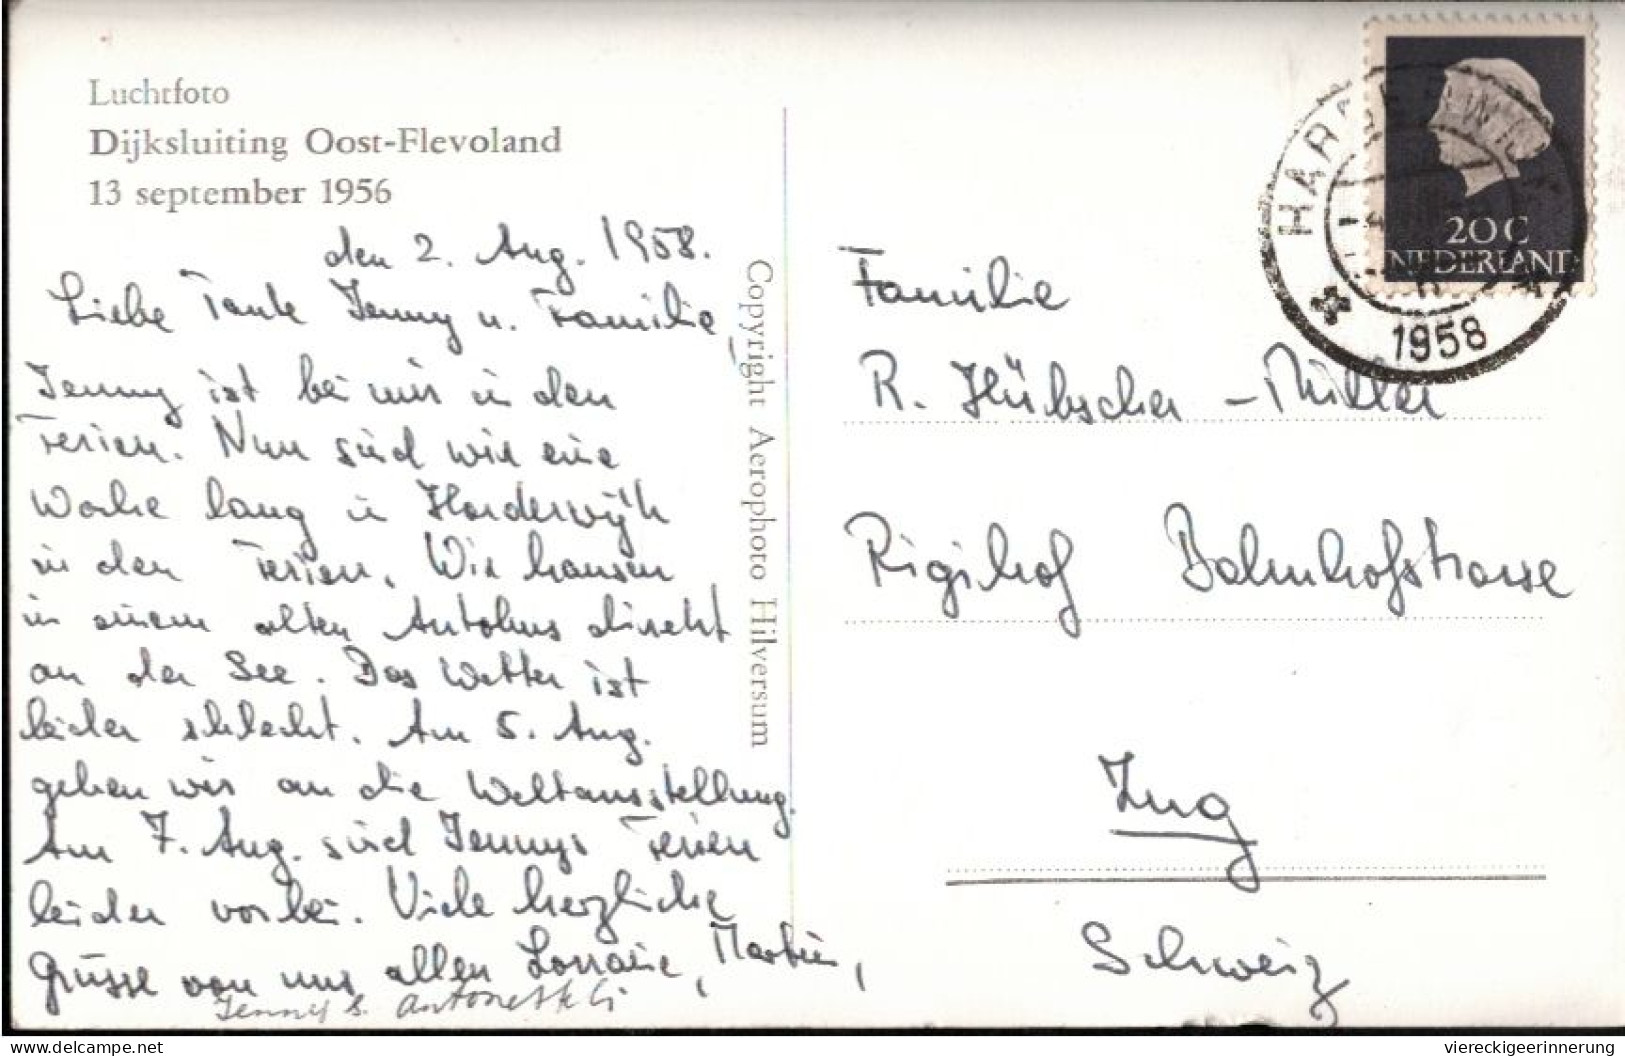 Luchtfoto
Dijksluiting Oost-Flevoland
13 september 1956
den 2. Aug. 1958.
Liebe Tante Jenny u. Familie,
Jenny ist bei mir in den
Ferien. Nun sind wir eine
Woche lang in Harderwijk
in den Ferien. Wir hausen
in einem alten Autobus direkt
an der See. Das Wetter ist
leider schlecht. Am 5. Aug.
gehen wir an die Weltausstellung.
Am 7. Aug. sind Jennys Ferien
leider vorbei. Viele herzliche
Grüsse von uns allen Lorraine, Martin,
Jenny &
Copyright Aerophoto Hilversum
20 C
NEDERLAND
1958
Familie
R. Hübscher-Müller
Rigihof Bahnhofstrasse
Zug
Schweiz
www.delcampe.net
viereckigeerinnerung